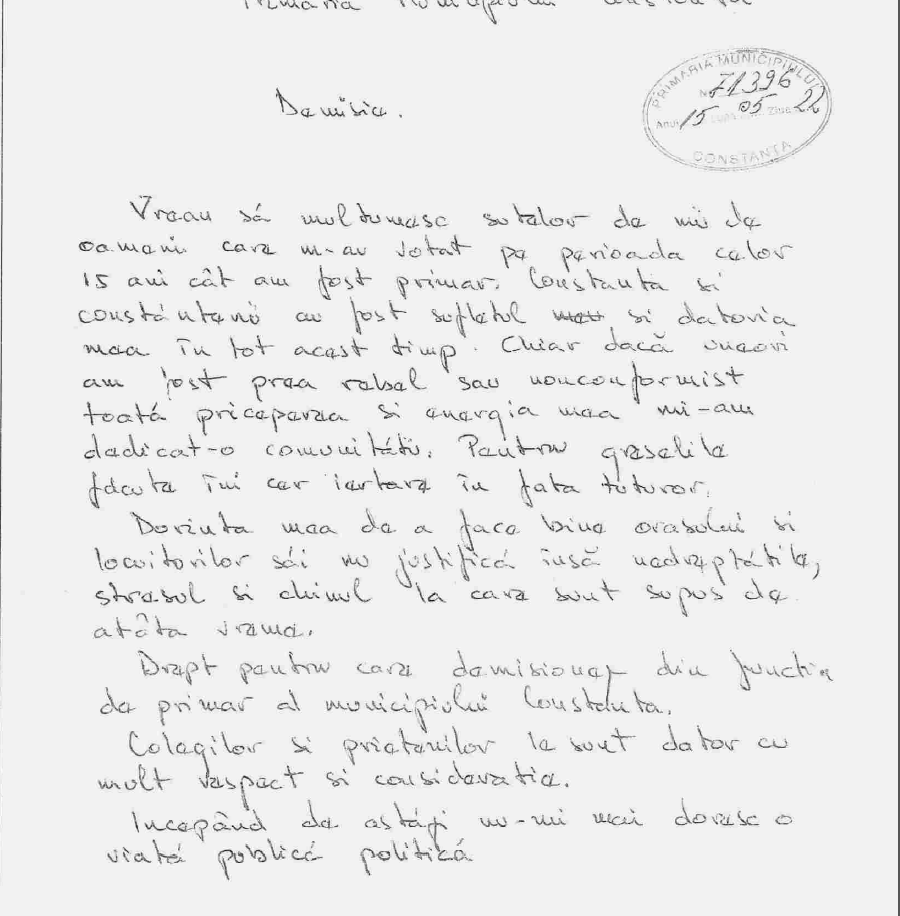 Primăria Municipiului Constanta
PRIMARIA MUNICIPIULUI
Nr. 71396
Anul 15 05 Ziua 22
CONSTANTA
Demisie.
Vreau să multumesc sutelor de mii de
oameni care m-au votat pe perioada celor
15 ani cât am fost primar. Constanta si
constăntenii au fost sufletul si datoria
mea în tot acest timp. Chiar dacă uneori
am fost prea rebel sau nonconformist
toată priceperea si energia mea mi-am
dedicat-o comunității. Pentru greselile
făcute îmi cer iertare în fata tuturor.
Dorinta mea de a face bine orasului si
locuitorilor săi nu justifică însă nedreptătile,
stresul si chinul la care sunt supus de
atâta vreme.
Drept pentru care demisionez din functia
de primar al municipiului Constanta.
Colegilor si prietenilor le sunt dator cu
mult respect si consideratie.
Incepând de astăzi nu-mi mai doresc o
viată publică politică